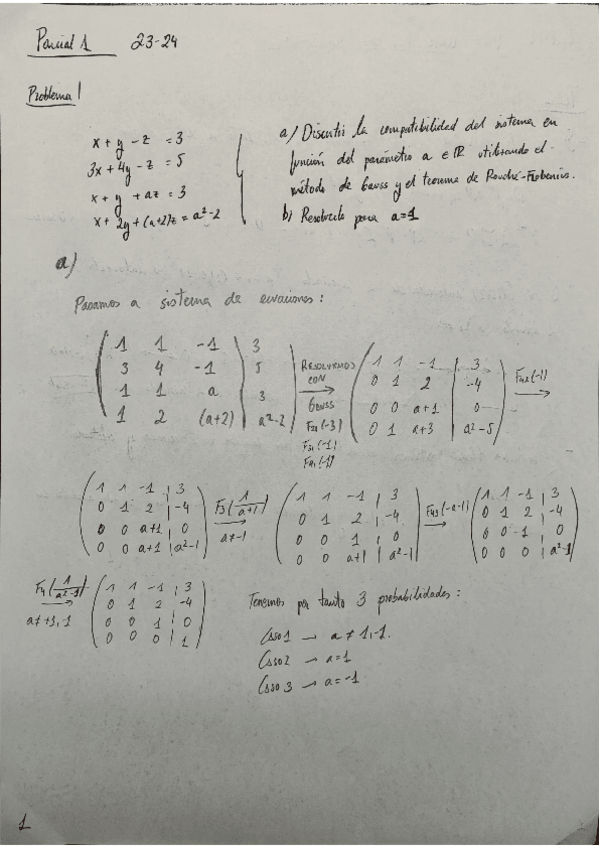 Parcial 1 23-24
Problema 1
x + y - z = 3
3x + 4y - z = 5
x + y + az = 3
x + 2y + (a+2)z = a²-2
a/ Discutir la compatibilidad del sistema en
función del parámetro a ∈ ℝ utilizando el
método de Gauss y el teorema de Rouché-Frobenius.
b) Resolverlo para a=1
a/
Pasamos a sistema de ecuaciones:
1 1 -1 | 3
3 4 -1 | 5
1 1 a | 3
1 2 (a+2) | a²-2
RESOLVEMOS
CON
GAUSS
F21(-3)
F31(-1)
F41(-1)
1 1 -1 | 3
0 1 2 | -4
0 0 a+1 | 0
0 1 a+3 | a²-5
F42(-1)
1 1 -1 | 3
0 1 2 | -4
0 0 a+1 | 0
0 0 a+1 | a²-1
F3(1/a+1)
a≠-1
1 1 -1 | 3
0 1 2 | -4
0 0 1 | 0
0 0 a+1 | a²-1
F43(-a-1)
1 1 -1 | 3
0 1 2 | -4
0 0 1 | 0
0 0 0 | a²-1
F4(1/a²-1)
a≠+1,-1
1 1 -1 | 3
0 1 2 | -4
0 0 1 | 0
0 0 0 | 1
Tenemos por tanto 3 probabilidades:
Caso 1 → a ≠ 1,-1.
Caso 2 → a=1
Caso 3 → a=-1
1